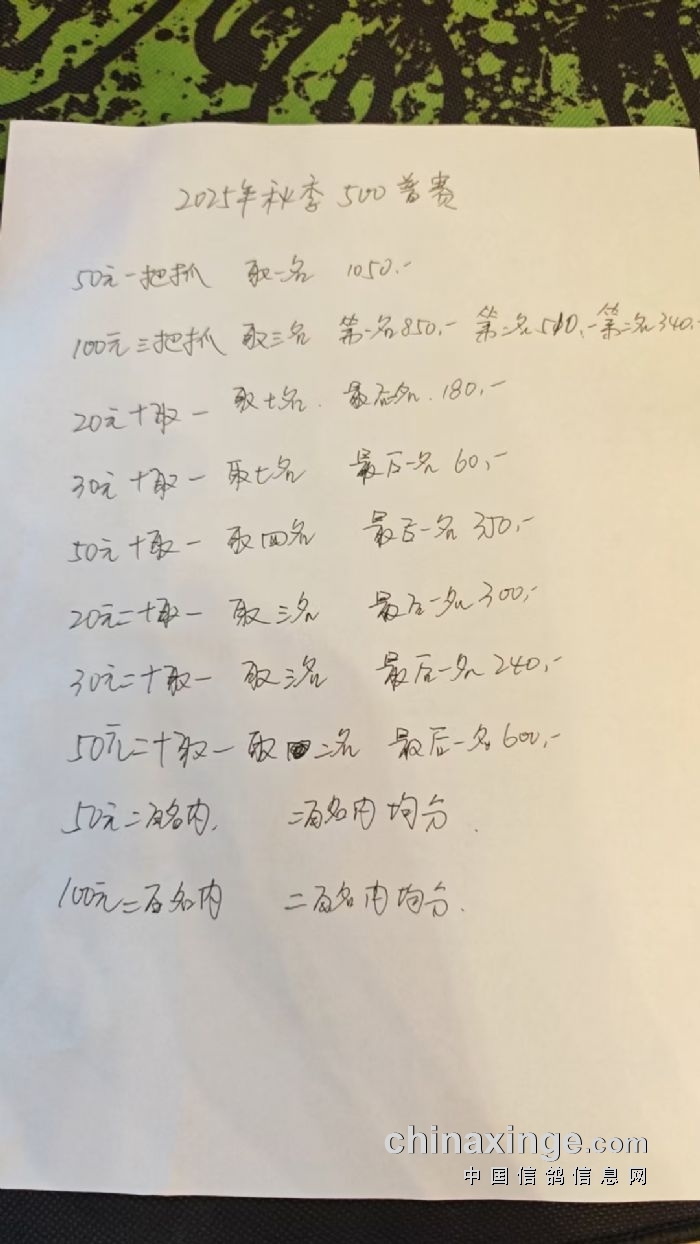 2025年秋季 500普赛
50元一把抓 取一名 1050.-
100元三把抓 取三名 第一名850.- 第二名510.- 第三名340.-
20元十取一 取七名. 最后一名. 180.-
30元十取一 取七名 最后一名 60.-
50元十取一 取四名 最后一名 350.-
20元二十取一 取三名 最后一名300.-
30元二十取一 取三名 最后一名240.-
50元二十取一 取二名 最后一名600.-
50元二百名内. 二百名内均分.
100元二百名内 二百名内均分.
chinaxinge.com
中国信鸽信息网